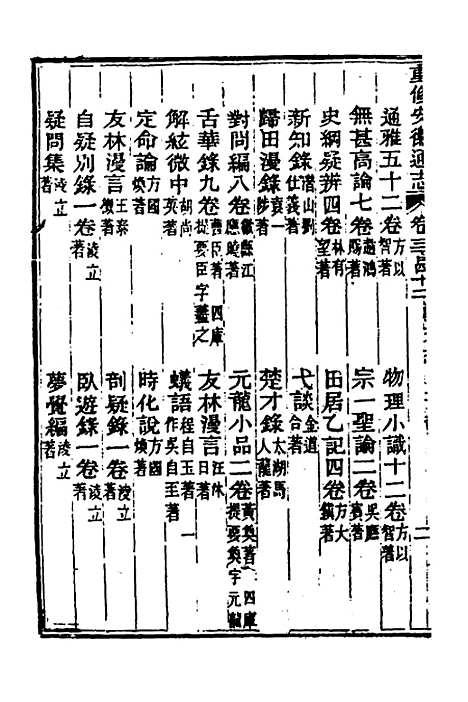 重修安徽通志 卷三百四十二
通雅五十二卷方以智著 物理小識十二卷方以智著
無甚高論七卷趙鴻賜著 宗一聖論二卷吳應賓著
史綱疑辨四卷林有望著 田居乙記四卷方大鎮著
新知錄潛山劉仕義著 弋談金道合著
歸田漫錄袁一著 楚才錄太湖馬人龍著
對問編八卷徽縣江應曉著 元龍小品二卷黃奐著 四庫提要奐字元龍
舌華錄九卷曹臣著 四庫提要臣字藎之 友林漫言汪休日著
解絃微中胡尚英著 蟻語程自玉著 一作吳自玉著
定命論方國煥著 時化說方國煥著
友林漫言王泰徵著 剖疑錄一卷淩立著
自疑別錄一卷淩立著 臥遊錄一卷淩立著
疑問集淩立著 夢覺編淩立著